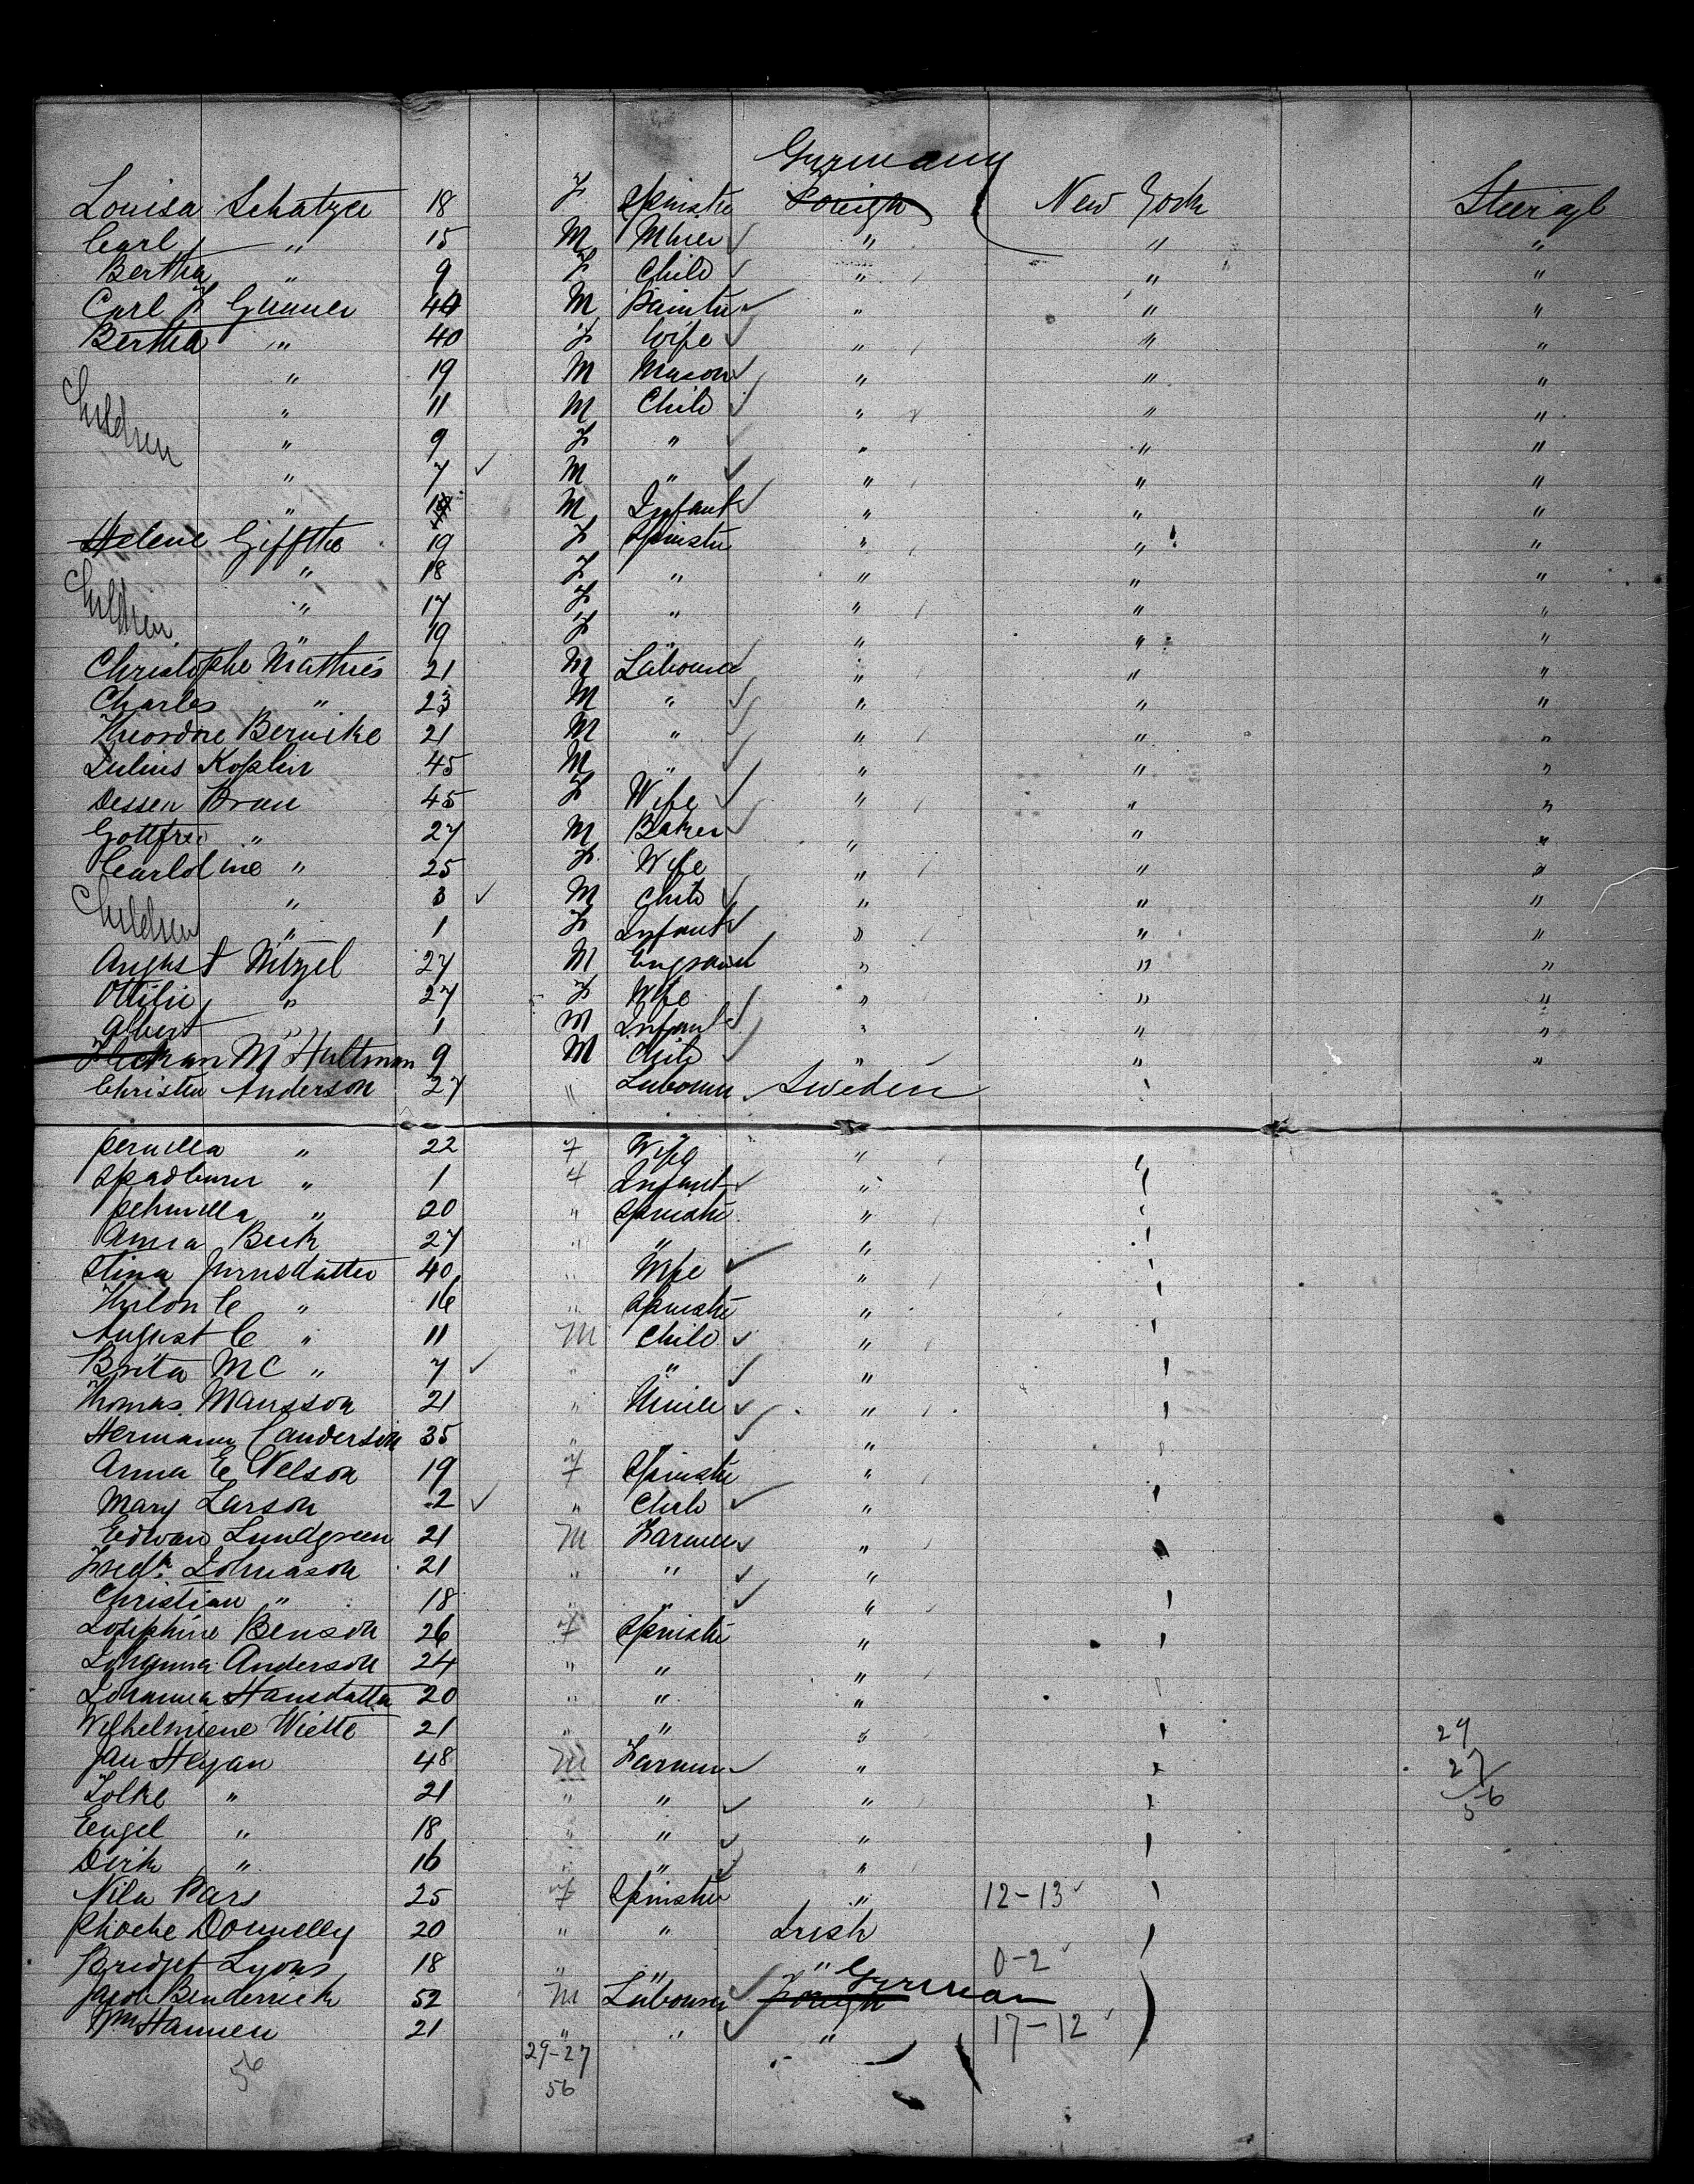 Germany
Louisa Schatzer 18 F Spinster Foreign New York Steerage
Carl " 15 M " " "
Bertha " 9 F Child " " "
Carl F 40 M Painter " " "
Bertha " 40 F Wife " " "
" 19 M Mason " " "
Children " 11 M Child " " "
" 9 F " " " "
" 7 M " " " "
" M Infant " " "
Helene Gifftho 19 F Spinster " " "
Children " 18 F " " " "
" 17 F " " " "
" 19 F " " " "
Christophe Mathies 21 M Labourer " " "
Charles " 23 M " " " "
Theodore Bernike 21 M " " " "
Julius Koplin 45 M " " " "
Dessen Brau 45 F Wife " " "
Gottfried " 27 M Baker " " "
Carloline " 25 F Wife " " "
Children " 3 M Child " " "
" 1 F Infant " " "
August Nitzel 27 M Engraver " " "
Ottilie " 27 F Wife " " "
Albert " 1 M Infant " " "
Herman M Hultman 9 M Child " " "
Christen Anderson 27 " Labourer Sweden
Pernilla " 22 F Wife " "
" 1 F Infant "
" 20 " Spinster "
Anna Beck 27 " " "
Stina Jurnsdatter 40 " Wife "
C " 16 " Spinster "
August C " 11 M Child "
Brita M C " 7 " " "
Thomas Mansson 21 " Miner "
Hermann C anderson 35 " " "
Anna E Nelson 19 F Spinster "
Mary Larson 2 " Child "
Edward Lundgreen 21 M Farmer "
Fredk Johnason 21 " " "
Christian " 18 " " "
Josephine Benson 26 F Spinster "
Johanna Anderson 24 " " "
Johanna Hansdatter 20 " " "
Wilhelmiene Wiette 21 " " " 29
Jan Heyan 48 M Farmer " 27
Folke " 21 " " " 56
Engel " 18 " " "
Dirk " 16 " " "
Nila Pars 25 F Spinster " 12-13
Phoebe Donnelly 20 " " Irish
Bridget Lyons 18 " " " 0-2
German
Jacob Benderrick 52 M Labourer Foreign
Wm Hannen 21 " " " 17-12
56 29-27
56